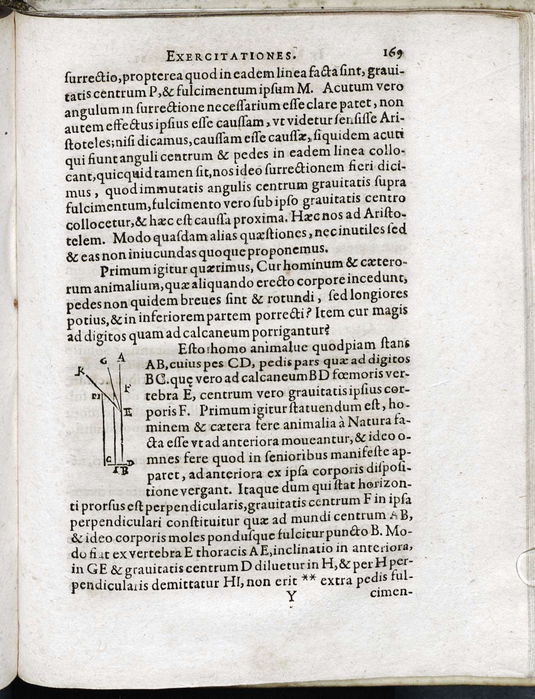 EXERCITATIONES. 169
surrectio, propterea quod in eadem linea facta sint, graui-
tatis centrum P, & fulcimentum ipsum M. Acutum vero
angulum in surrectione necessarium esse clare patet, non
autem effectus ipsius esse caussam, vt videtur sensisse Ari-
stoteles; nisi dicamus, caussam esse caussæ, siquidem acuti
qui fiunt anguli centrum & pedes in eadem linea collo-
cant, quicquid tamen sit, nos ideo surrectionem fieri dici-
mus, quod immutatis angulis centrum grauitatis supra
fulcimentum, fulcimento vero sub ipso grauitatis centro
collocetur, & hæc est caussa proxima. Hæc nos ad Aristo-
telem. Modo quasdam alias quæstiones, nec inutiles sed
& eas non iniucundas quoque proponemus.
Primum igitur quærimus, Cur hominum & cætero-
rum animalium, quæ aliquando erecto corpore incedunt,
pedes non quidem breues sint & rotundi, sed longiores
potius, & in inferiorem partem porrecti? Item cur magis
ad digitos quam ad calcaneum porrigantur?
Esto homo animalue quodpiam stans
AB, cuius pes CD, pedis pars quæ ad digitos
BC. quę vero ad calcaneum BD fœmoris ver-
tebra E, centrum vero grauitatis ipsius cor-
poris F. Primum igitur statuendum est, ho-
minem & cætera fere animalia à Natura fa-
cta esse vt ad anteriora moueantur, & ideo o-
mnes fere quod in senioribus manifeste ap-
paret, ad anteriora ex ipsa corporis disposi-
tione vergant. Itaque dum qui stat horizon-
ti prorsus est perpendicularis, grauitatis centrum F in ipsa
perpendiculari constituitur quæ ad mundi centrum AB,
& ideo corporis moles pondusque fulcitur puncto B. Mo-
do fiat ex vertebra E thoracis AE, inclinatio in anteriora,
in GE & grauitatis centrum D diluetur in H, & per H per-
pendicularis demittatur HI, non erit ** extra pedis ful-
Y cimen-
G A
K
F
E
C D
I B